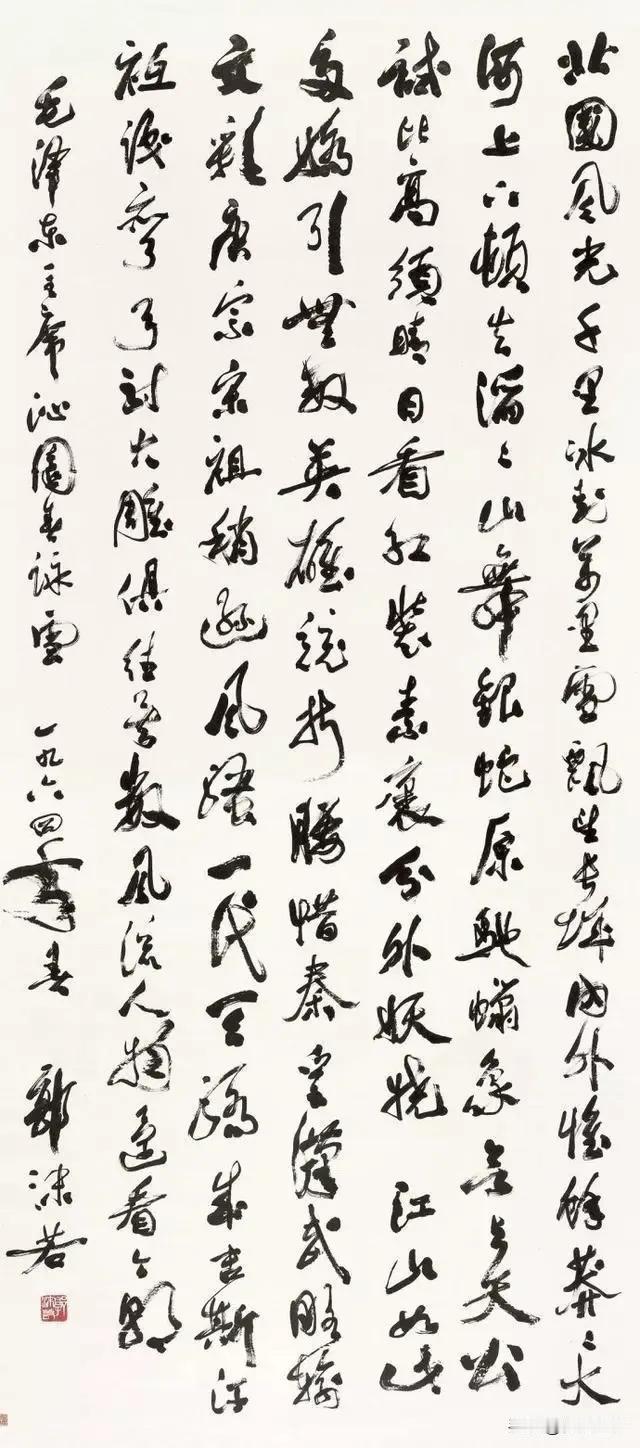 北國风光千里冰封萬里雪飄望长城内外惟餘莽〻大
河上下頓失滔〻山舞銀蛇原馳蠟象欲与天公
試比高須晴日看红裝素裹分外妖娆 江山如此
多嬌引無数英雄競折腰惜秦皇漢武略输
文彩唐宗宋祖稍逊风骚一代天骄成吉斯汗
祗识弯弓射大雕俱往矣数风流人物还看今朝
毛泽东主席沁園春詠雪 一九六四年春 郭沫若